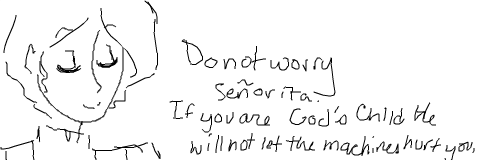 Do not worry
Señorita.
If you are God's Child He
will not let the machines hurt you.